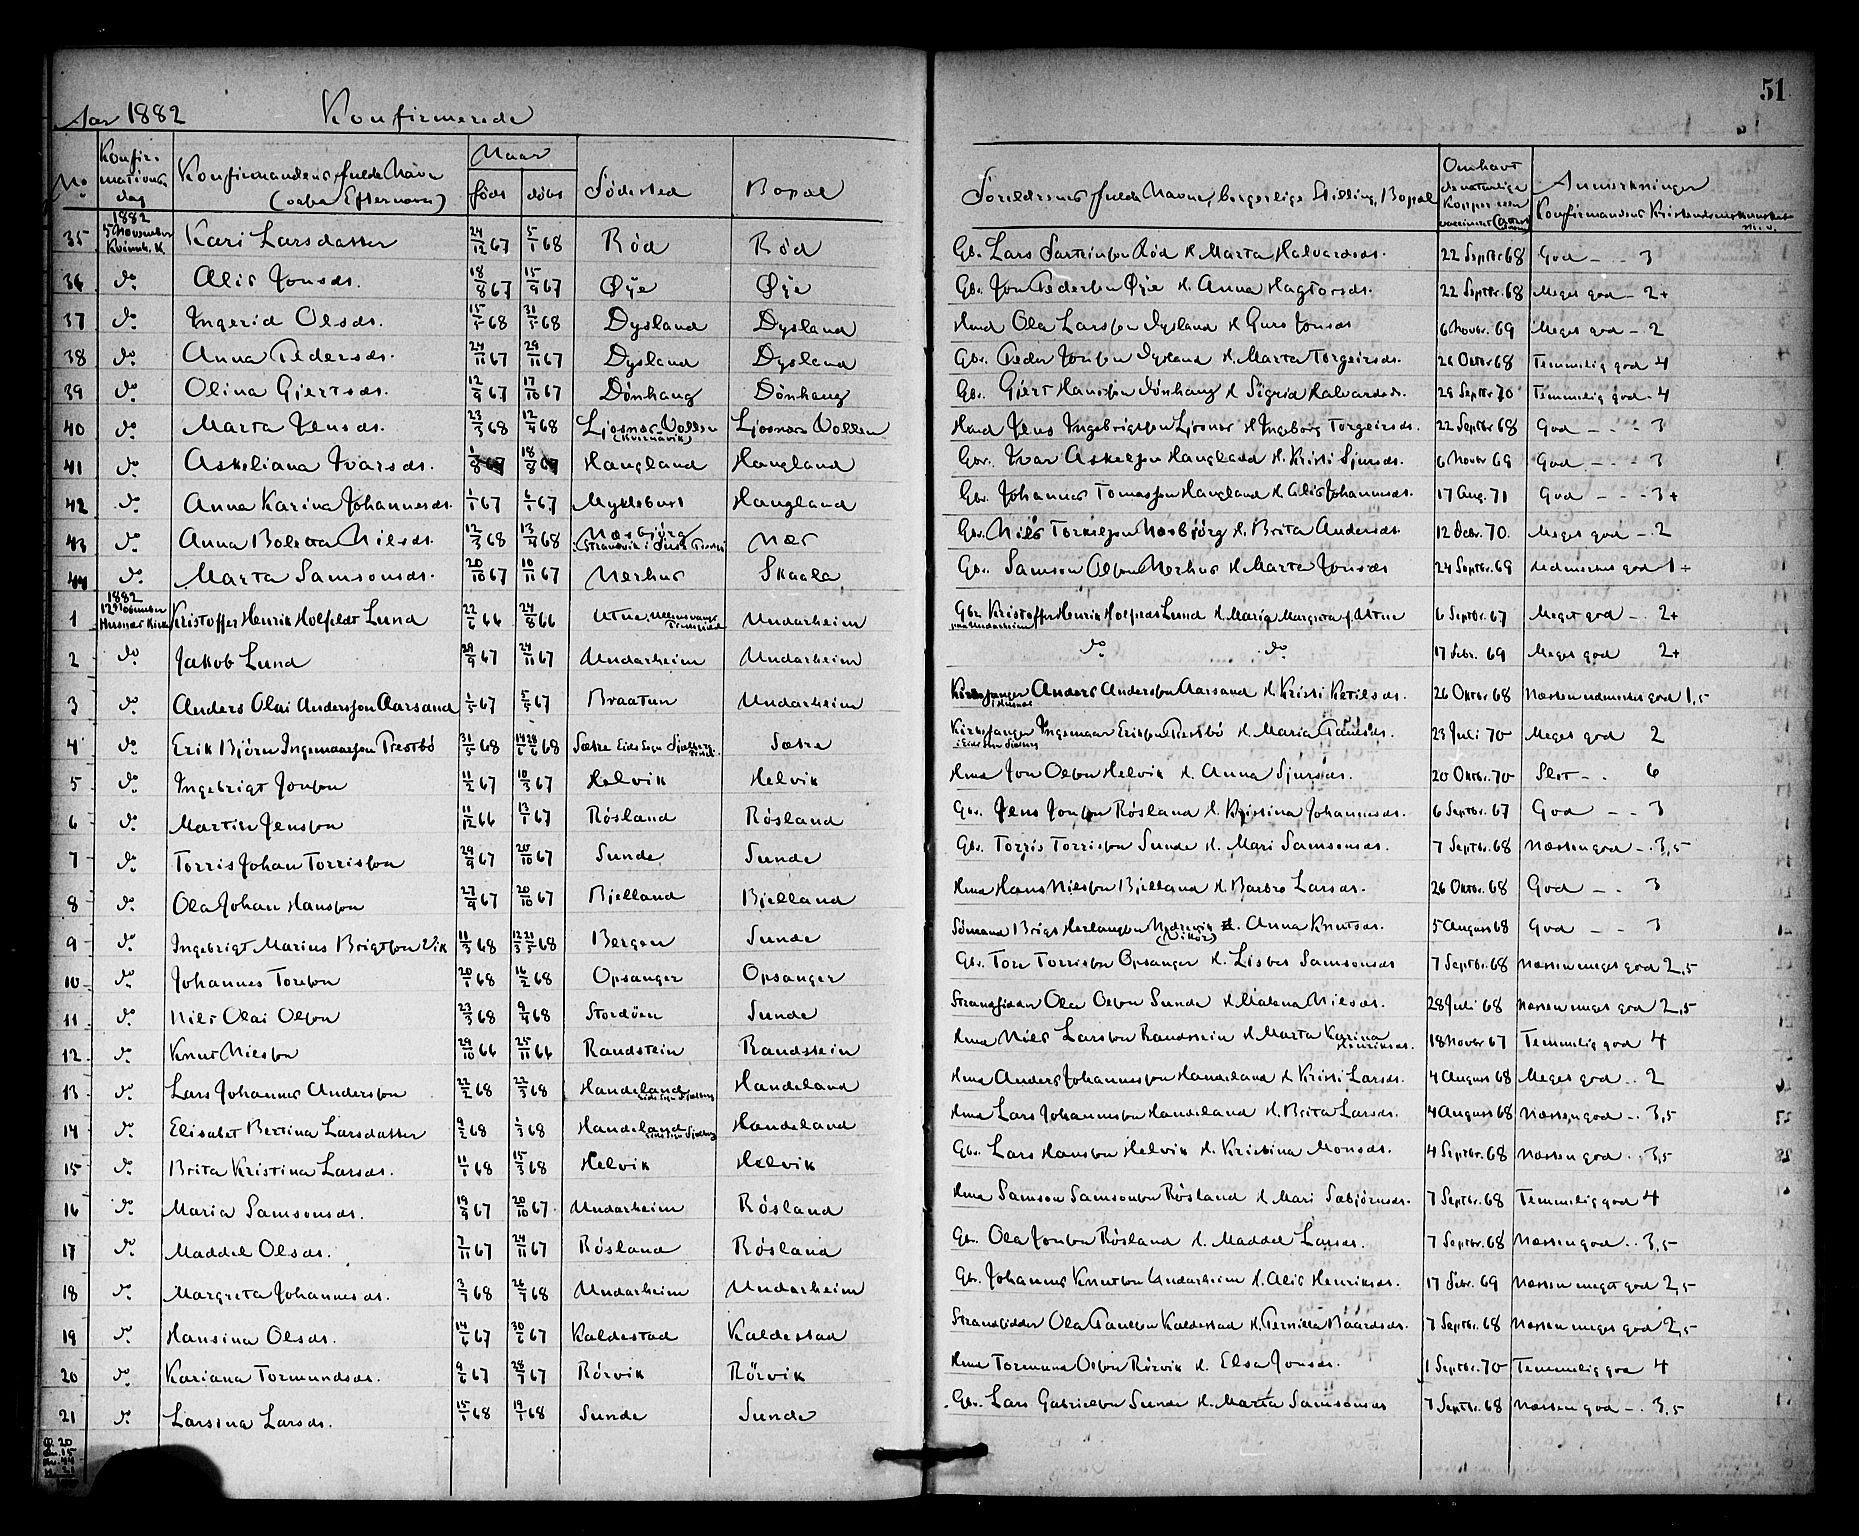 51
Aar 1882 Konfirmerede
No Konfirmationsdag Konfirmandens fulde Navn (ogsaa Efternavn) Naar født døbt Födested Bopæl Foreldrenes fulde Navne, borgerlige Stilling, Bopæl Anmerkninger Konfirmandens Kristendomskundskab m.v.
35 1882 5 November Kvinnh. K Kari Larsdatter 24/12 67 5/1 68 Röd Röd Gbr. Lars Röd H. Marta Halvardsds. 22 Septbr 68 God - - 3
36 do. Alis Jonsds. 18/8 67 15/9 67 Øye Øye Gbr. Jon Pedersen Øye H. Anna Hagtorsds. 22 Septbr. 68 Meget god - 2+
37 do. Ingerid Olsds. 15/5 68 31/5 68 Dysland Dysland Hmd Ola Larssen Dysland H Guro Jonsds 6 Novbr. 69 Meget god - 2
38 do. Anna Pedersds. 24/11 67 29/11 67 Dysland Dysland Gbr. Peder Jonsen Dysland H. Marta Torgeirsds. 26 Oktbr 68 Temmelig god 4
39 do. Olina Gjertsds. 12/9 67 17/10 67 Dönhaug Dönhaug Gbr. Gjert Hansson Dönhaug H Sigrid Halvardsds. 28 Septbr 70 Temmelig god - 4
40 do. Marta Jensds. 23/3 68 12/4 68 Ljosnes Vollen (Kvernavik) Ljosnes Vollen Hmd Jens Ingebrigtsen Ljosnes H Ingeborg Torgeirsds. 22 Septbr 68 God - - - 3
41 do. Askeliana Ivarsds. 1/8 67 18/8 67 Haugland Haugland Gbr. Ivar Askelsen Haugland H. Kristi Sjursds. 6 Novbr 69 God - - - 3
42 do. Anna Karina Johannesds. 1/1 67 6/1 67 Myklebust Haugland Gbr. Johannes Tomassen Haugland H Alis Johannesds. 17 Aug. 71 God - - - 3+
43 do. Anna Boletta Nilsds. 12/3 68 13/4 68 Næsbjörg Nes Gbr. Nils Torkelsen Næsbjörg H. Brita Andersds. 12 Oktbr. 70. Meget god - 2
44 do. Marta Samsonsds. 20/10 67 10/11 67 Nerhus Skaala Gbr. Samson Olsen Nerhus H. Marta Jonsds 24 Septbr. 69 Udmerket god 1+
1 1882 12te November Husnes Kirke Kristoffer Henrik Holfeldt Lund 22/6 66 24/8 66 Utne, Ullensvangs Prestegjeld Undarheim Gbr. Kristoffer Henrik Holfeldt Lund H. Maria Margreta f. Utne 6 Septbr. 67 Meget god - 2+
2 do. Jakob Lund 29/9 67 24/11 67 Undarheim Undarheim do. do. 17 Febr. 69 Meget god 2+
3 do. Anders Olai Anderssen Aarsand 1/5 67 5/5 67 Braatun Undarheim Kirkesanger Anders Anderssen Aarsand H Kristi Ketilsds. 26 Oktbr 68 Næsten udmerket god 1,5
4 do. Erik Björn Ingemarsen Trestbö 31/5 68 14/6 28/6 68 Sætre Eids Sogn Sætre Kirkesanger Ingemaar Eriksen Trestbö H. Maria Paulsds. 23 Juli 70 Meget god 2
5 do. Ingebrigt Jonsen 11/2 67 10/3 67 Helvik Helvik Hmd Jon Olsen Helvik H. Anna Sjursds. 20 Oktbr. 70 Slet - . 6
6 do. Martin Jensen 11/12 66 13/1 67 Rösland Rösland Gbr. Jens Jonsen Rösland H. Kristina Johannesds. 6 Septbr. 67 God - - 3
7 do. Torris Johan Torrissen 29/9 67 20/10 67 Sunde Sunde Gbr. Torris Torrissen Sunde H. Mari Samsonsds. 7 Septbr. 68 Næsten god - . 3,5
8 do. Ola Johan Hansson 27/9 67 20/10 67 Bjelland Bjelland Hmd Hans Nilssen Bjelland H. Barbro Larsds. 26 Oktbr. 68 God - . 3
9 do. Ingebrigt Marius Brigtsen Vik 11/3 68 12/3 21/5 68 Bergen Sunde Sömand Brigt Herlaugsen Nedrevik (Vikör) H. Anna Knutsds. 5 August 68 God - - 3
10 do. Johannes Toresen 20/1 68 16/2 68 Opsanger Opsanger Gbr. Tore Torrissen Opsanger H. Lisbet Samsonsds 7 Septbr. 68 Næsten meget god 2,5
11 do. Nils Olai Olsen 23/3 68 9/4 68 Stordöen Sunde Strandsidder Ola Olsen Sunde H Malena Nilsds. 28 Juli 68 Næsten meget god 2,5
12 do. Knut Nilssen 29/10 66 25/11 66 Randstein Randstein Hmd Nils Larssen Randstein H. Marta Karina Henriksds. 18 Novbr 67 Temmelig god 4
13 do. Lars Johannes Andersen 22/2 68 22/3 68 Handeland Handeland Hmd Anders Johannessen Handeland H Kristi Larsds. 4 August 68 Meget god . . 2
14 do. Elisabet Bertina Larsdatter 9/2 68 1/3 68 Handeland Handeland Hmd Lars Johannessen Handeland H. Brita Larsds. 4 August 68 Næsten god - . 3,5
15 do. Brita Kristina Larsds. 11/1 68 15/3 68 Helvik Helvik Gbr. Lars Hansson Helvik H. Kristina Monsds. 4 Septbr. 68 Næsten god . . 3,5
16 do. Maria Samsonsds. 19/9 67 20/10 67 Undarheim Rösland Hmd Samson Samsonsen Rösland H Mari Sæbjörnsds. 7 Septbr. 68 Temmelig god 4
17 do. Maddel Olsds. 7/11 67 24/11 67 Rösland Rösland Gbr. Ola Jonsen Rösland H. Maddel Larsds. 7 Septbr. 68 Næsten god . . 3,5
18 do. Margreta Johannesds. 3/7 68 26/7 68 Undarheim Undarheim Gbr. Johannes Knutsen Undarheim H. Alis Henriksds. 17 Febr. 69 Næsten meget god 2,5
19 do. Hansina Olsds. 14/6 67 30/6 67 Kaldestad Kaldestad Strandsidder Ola Paulsen Kaldestad H. Pernilla Baardsds. 7 Septbr. 68 Næsten meget god 2,5
20 do. Kariana Tormundsds. 9/6 67 28/7 67 Rörvik Rörvik Hmd Tormund Olsen Rörvik H. Elsa Jonsds. 1 Septbr. 70 Temmelig god 4
21 do. Larsina Larsds. 15/1 68 19/1 68 Sunde Sunde Gbr. Lars Gabrielsen Sunde H. Marta Samsonsds 7 Septbr. 68 Næsten god - . 3,5